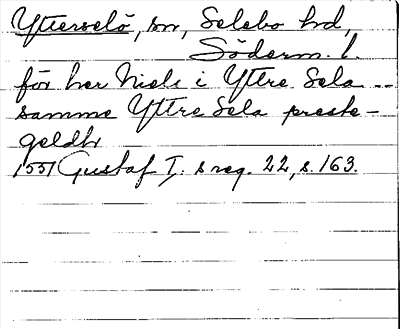 Ytterselö, sn, Selebo hd,
Söderm. l.
för her Niels i Yttre Sela --
samme Yttre Sela preste-
geldh
1551 Gustaf I:s reg. 22, s. 163.